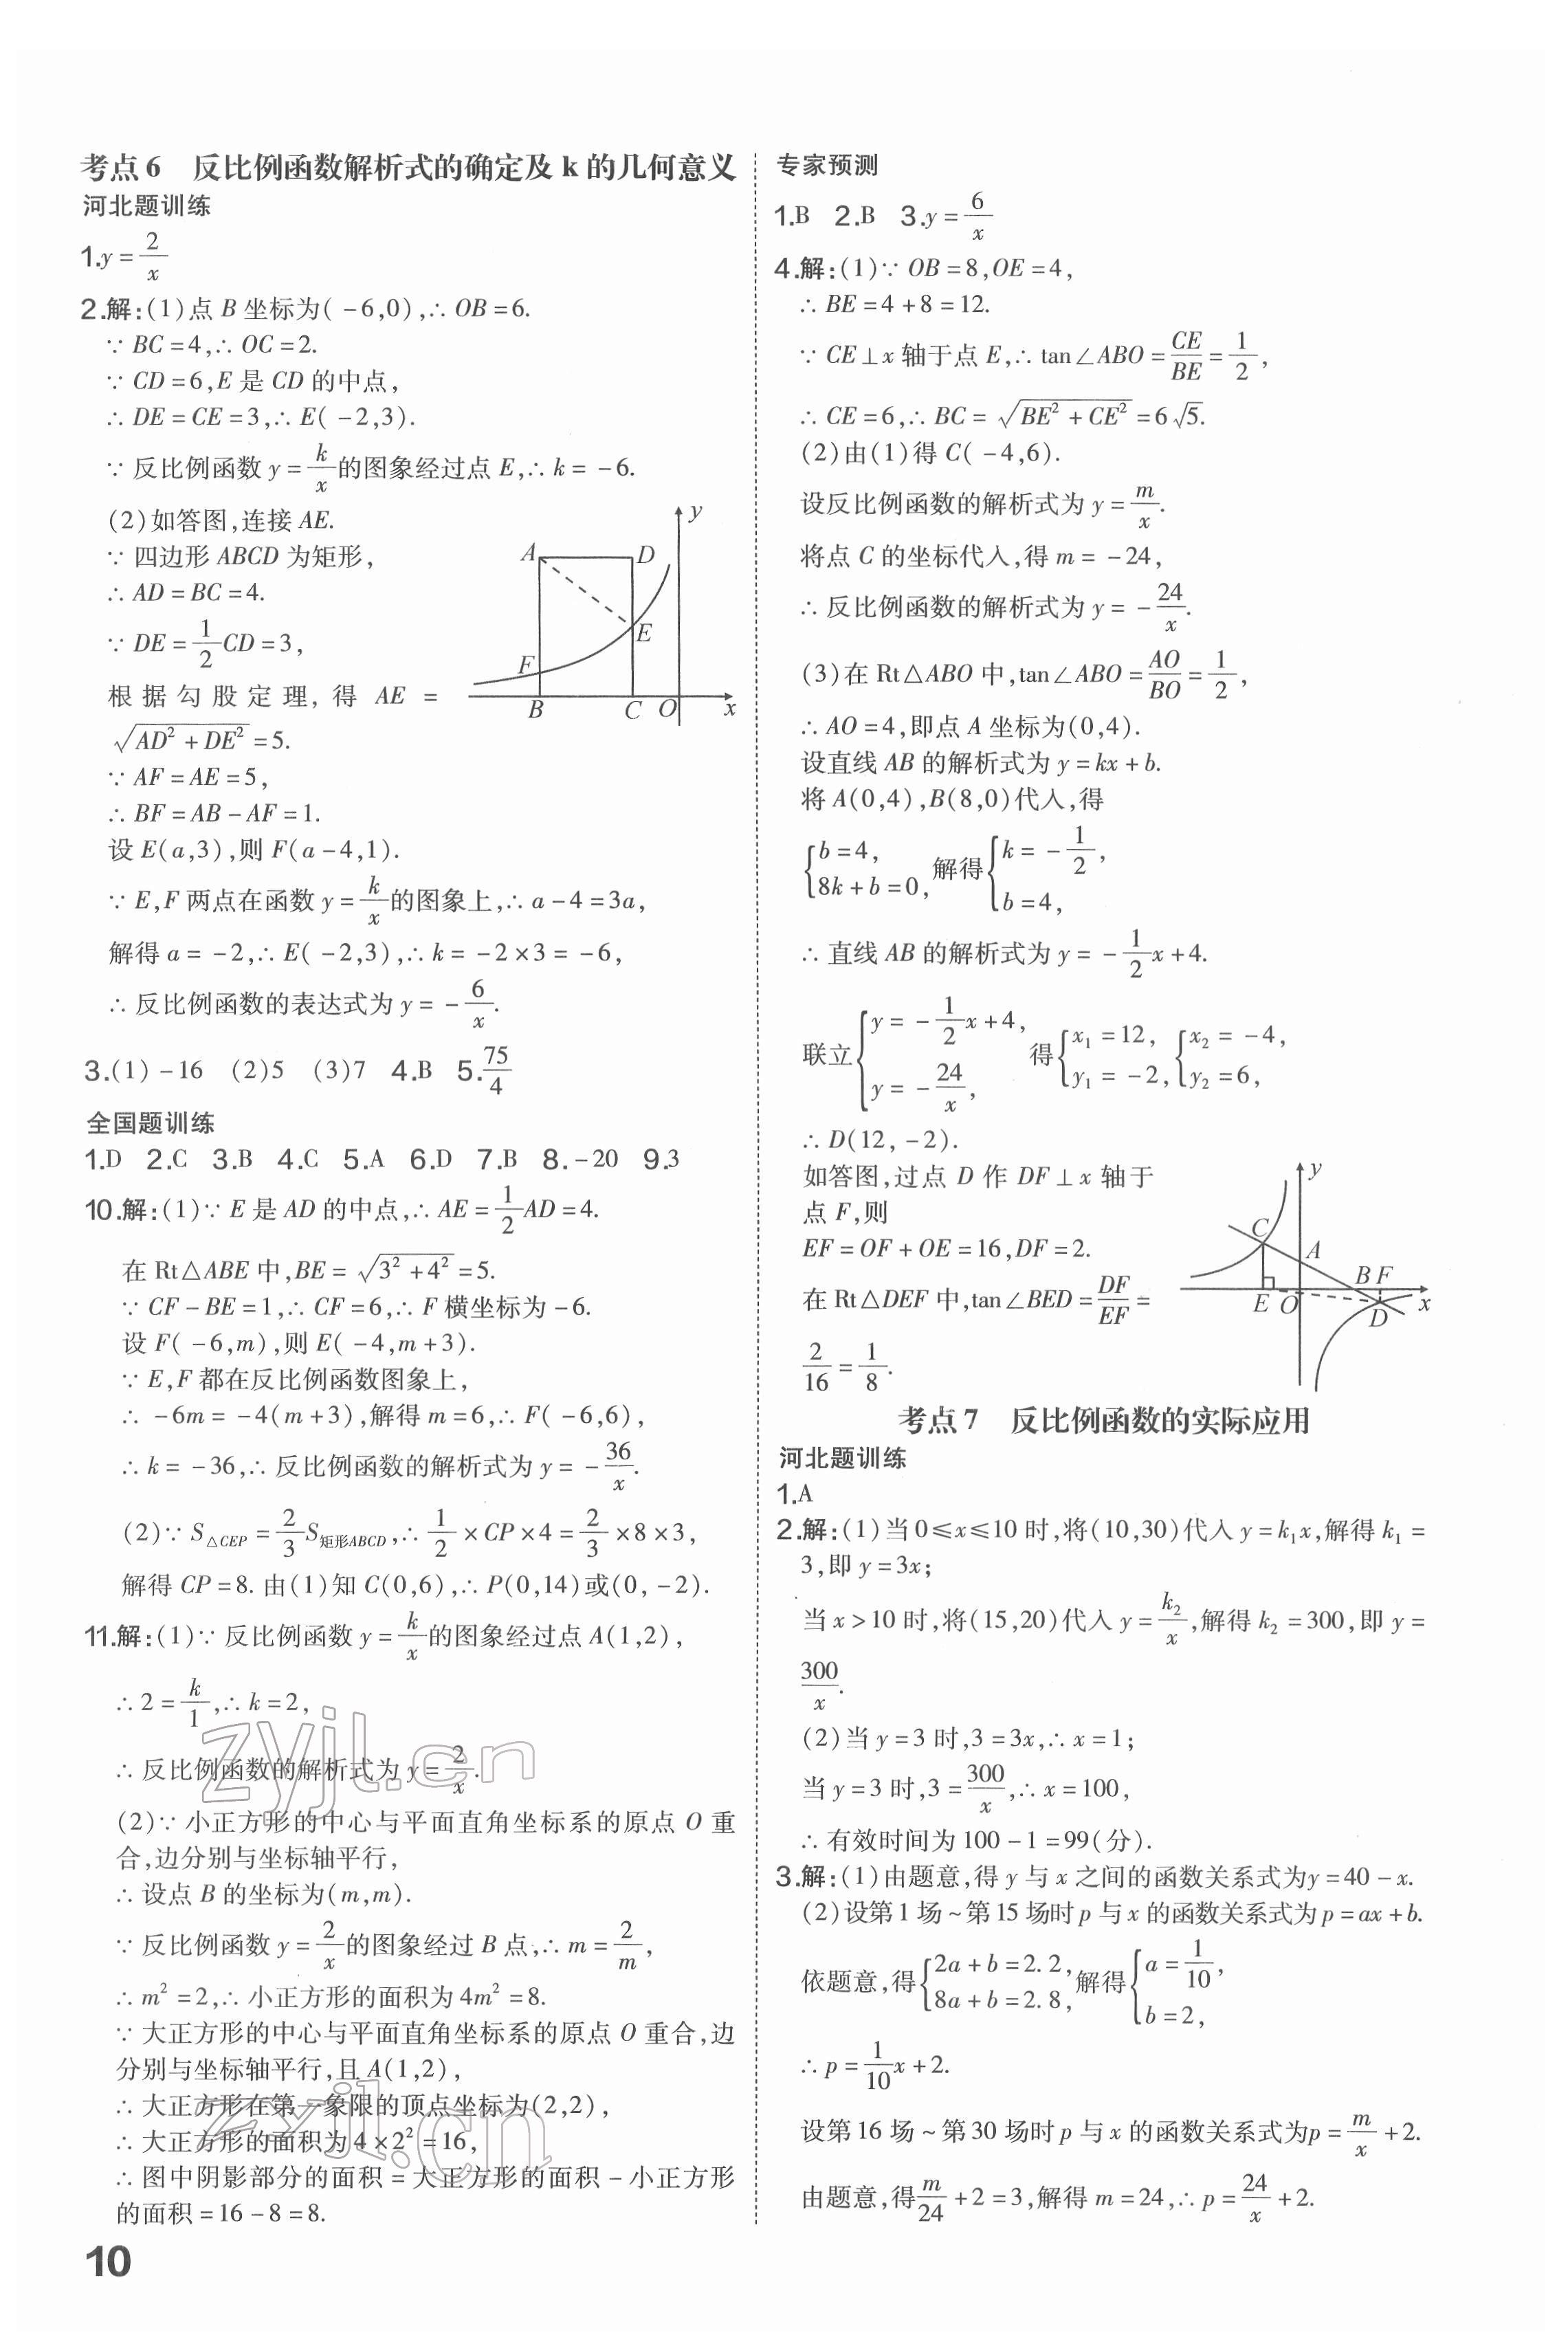 考点6　反比例函数解析式的确定及k的几何意义
河北题训练
1.y=2/x
2.解:(1)点B坐标为(-6,0),∴OB=6.
∵BC=4,∴OC=2.
∵CD=6,E是CD的中点,
∴DE=CE=3,∴E(-2,3).
∵反比例函数y=k/x的图象经过点E,∴k=-6.
(2)如答图,连接AE.
∵四边形ABCD为矩形,
∴AD=BC=4.
∵DE=1/2CD=3,
根据勾股定理,得AE=
√(AD²+DE²)=5.
∵AF=AE=5,
∴BF=AB-AF=1.
设E(a,3),则F(a-4,1).
∵E,F两点在函数y=k/x的图象上,∴a-4=3a,
解得a=-2,∴E(-2,3),∴k=-2×3=-6,
∴反比例函数的表达式为y=-6/x.
y
A D
E
F
B C O x
3.(1)-16　(2)5　(3)7　4.B　5.75/4
全国题训练
1.D　2.C　3.B　4.C　5.A　6.D　7.B　8.-20　9.3
10.解:(1)∵E是AD的中点,∴AE=1/2AD=4.
在Rt△ABE中,BE=√(3²+4²)=5.
∵CF-BE=1,∴CF=6,∴F横坐标为-6.
设F(-6,m),则E(-4,m+3).
∵E,F都在反比例函数图象上,
∴-6m=-4(m+3),解得m=6,∴F(-6,6),
∴k=-36,∴反比例函数的解析式为y=-36/x.
(2)∵S△CEP=2/3S矩形ABCD,∴1/2×CP×4=2/3×8×3,
解得CP=8.由(1)知C(0,6),∴P(0,14)或(0,-2).
11.解:(1)∵反比例函数y=k/x的图象经过点A(1,2),
∴2=k/1,∴k=2,
∴反比例函数的解析式为y=2/x.
(2)∵小正方形的中心与平面直角坐标系的原点O重
合,边分别与坐标轴平行,
∴设点B的坐标为(m,m).
∵反比例函数y=2/x的图象经过B点,∴m=2/m,
∴m²=2,∴小正方形的面积为4m²=8.
∵大正方形的中心与平面直角坐标系的原点O重合,边
分别与坐标轴平行,且A(1,2),
∴大正方形在第一象限的顶点坐标为(2,2),
∴大正方形的面积为4×2²=16,
∴图中阴影部分的面积=大正方形的面积-小正方形
的面积=16-8=8.
zyjl.cn
zyjl.cn
10
专家预测
1.B　2.B　3.y=6/x
4.解:(1)∵OB=8,OE=4,
∴BE=4+8=12.
∵CE⊥x轴于点E,∴tan∠ABO=CE/BE=1/2,
∴CE=6,∴BC=√(BE²+CE²)=6√5.
(2)由(1)得C(-4,6).
设反比例函数的解析式为y=m/x.
将点C的坐标代入,得m=-24,
∴反比例函数的解析式为y=-24/x.
(3)在Rt△ABO中,tan∠ABO=AO/BO=1/2,
∴AO=4,即点A坐标为(0,4).
设直线AB的解析式为y=kx+b.
将A(0,4),B(8,0)代入,得
{b=4, 8k+b=0,解得{k=-1/2, b=4,
∴直线AB的解析式为y=-1/2x+4.
联立{y=-1/2x+4, y=-24/x,得{x₁=12, y₁=-2,{x₂=-4, y₂=6,
∴D(12,-2).
如答图,过点D作DF⊥x轴于
点F,则
EF=OF+OE=16,DF=2.
在Rt△DEF中,tan∠BED=DF/EF=
2/16=1/8.
y
C A
B F
E O D x
考点7　反比例函数的实际应用
河北题训练
1.A
2.解:(1)当0≤x≤10时,将(10,30)代入y=k₁x,解得k₁=
3,即y=3x;
当x>10时,将(15,20)代入y=k₂/x,解得k₂=300,即y=
300/x.
(2)当y=3时,3=3x,∴x=1;
当y=3时,3=300/x,∴x=100,
∴有效时间为100-1=99(分).
3.解:(1)由题意,得y与x之间的函数关系式为y=40-x.
(2)设第1场~第15场时p与x的函数关系式为p=ax+b.
依题意,得{2a+b=2.2, 8a+b=2.8,解得{a=1/10, b=2,
∴p=1/10x+2.
设第16场~第30场时p与x的函数关系式为p=m/x+2.
由题意,得m/24+2=3,解得m=24,∴p=24/x+2.